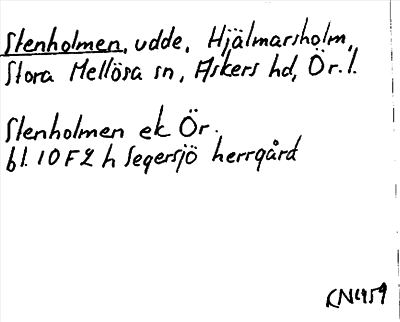 Stenholmen, udde, Hjälmarsholm,
Stora Mellösa sn, Askers hd, Ör. l.
Stenholmen ek Ör.
bl. 10F2 h Segersjö herrgård